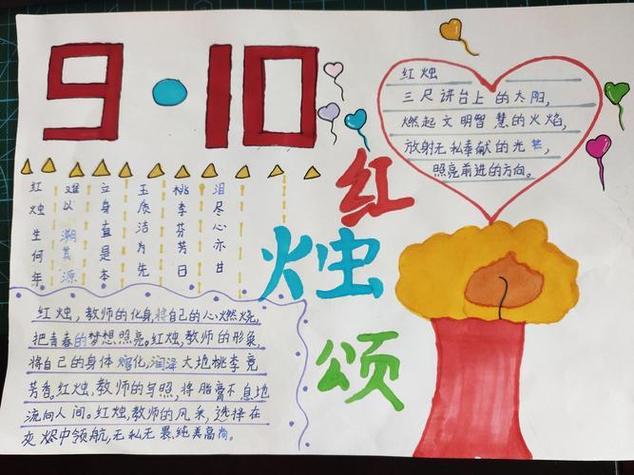 9·10
红烛颂
红烛
三尺讲台上的太阳,
燃起文明智慧的火焰,
放射无私奉献的光芒,
照亮前进的方向。
红烛生何年
难以溯其源
立身直是本
玉质洁为先
桃李芬芳日
泪尽心亦甘
红烛,教师的化身,将自己的心燃烧,
把青春的梦想照亮。红烛,教师的形象,
将自己的身体熔化,润泽大地桃李竞
芳香。红烛,教师的写照,将脂膏不息地
流向人间。红烛,教师的风采,选择在
烬中领航,无私无畏纯美高尚。